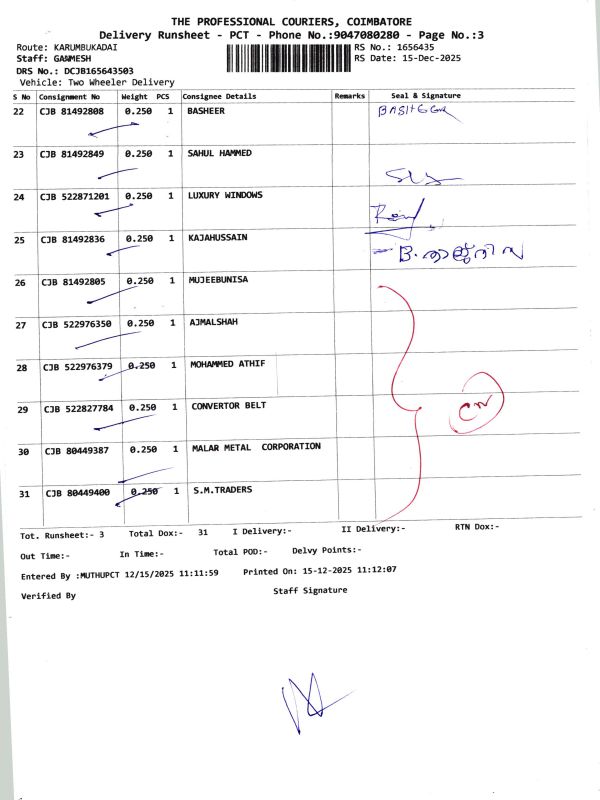 THE PROFESSIONAL COURIERS, COIMBATORE
Delivery Runsheet - PCT - Phone No.:9047080280 - Page No.:3
Route: KARUMBUKADAI RS No.: 1656435
Staff: GANMESH RS Date: 15-Dec-2025
DRS No.: DCJB165643503
Vehicle: Two Wheeler Delivery
S No Consignment No Weight PCS Consignee Details Remarks Seal & Signature
22 CJB 81492808 0.250 1 BASHEER
23 CJB 81492849 0.250 1 SAHUL HAMMED
24 CJB 522871201 0.250 1 LUXURY WINDOWS
25 CJB 81492836 0.250 1 KAJAHUSSAIN
26 CJB 81492805 0.250 1 MUJEEBUNISA
27 CJB 522976350 0.250 1 AJMALSHAH
28 CJB 522976379 0.250 1 MOHAMMED ATHIF
29 CJB 522827784 0.250 1 CONVERTOR BELT
30 CJB 80449387 0.250 1 MALAR METAL CORPORATION
31 CJB 80449400 0.250 1 S.M.TRADERS
Tot. Runsheet:- 3 Total Dox:- 31 I Delivery:- II Delivery:- RTN Dox:-
Out Time:- In Time:- Total POD:- Delvy Points:-
Entered By :MUTHUPCT 12/15/2025 11:11:59 Printed On: 15-12-2025 11:12:07
Verified By Staff Signature